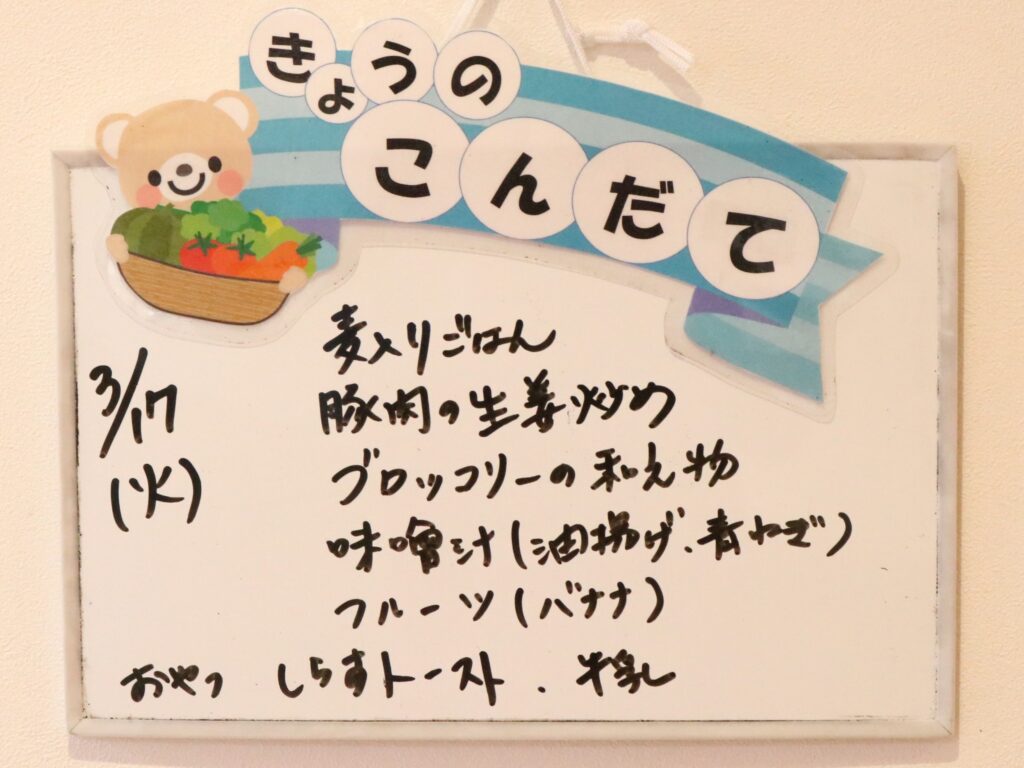 きょうの
こんだて
3/17
(火)
麦入りごはん
豚肉の生姜炒め
ブロッコリーの和え物
味噌汁(油揚げ、青ねぎ)
フルーツ(バナナ)
おやつ しらすトースト、牛乳